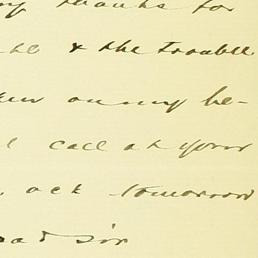 my thanks for
& the trouble
on my be-
call at your
ock tomorrow
sir